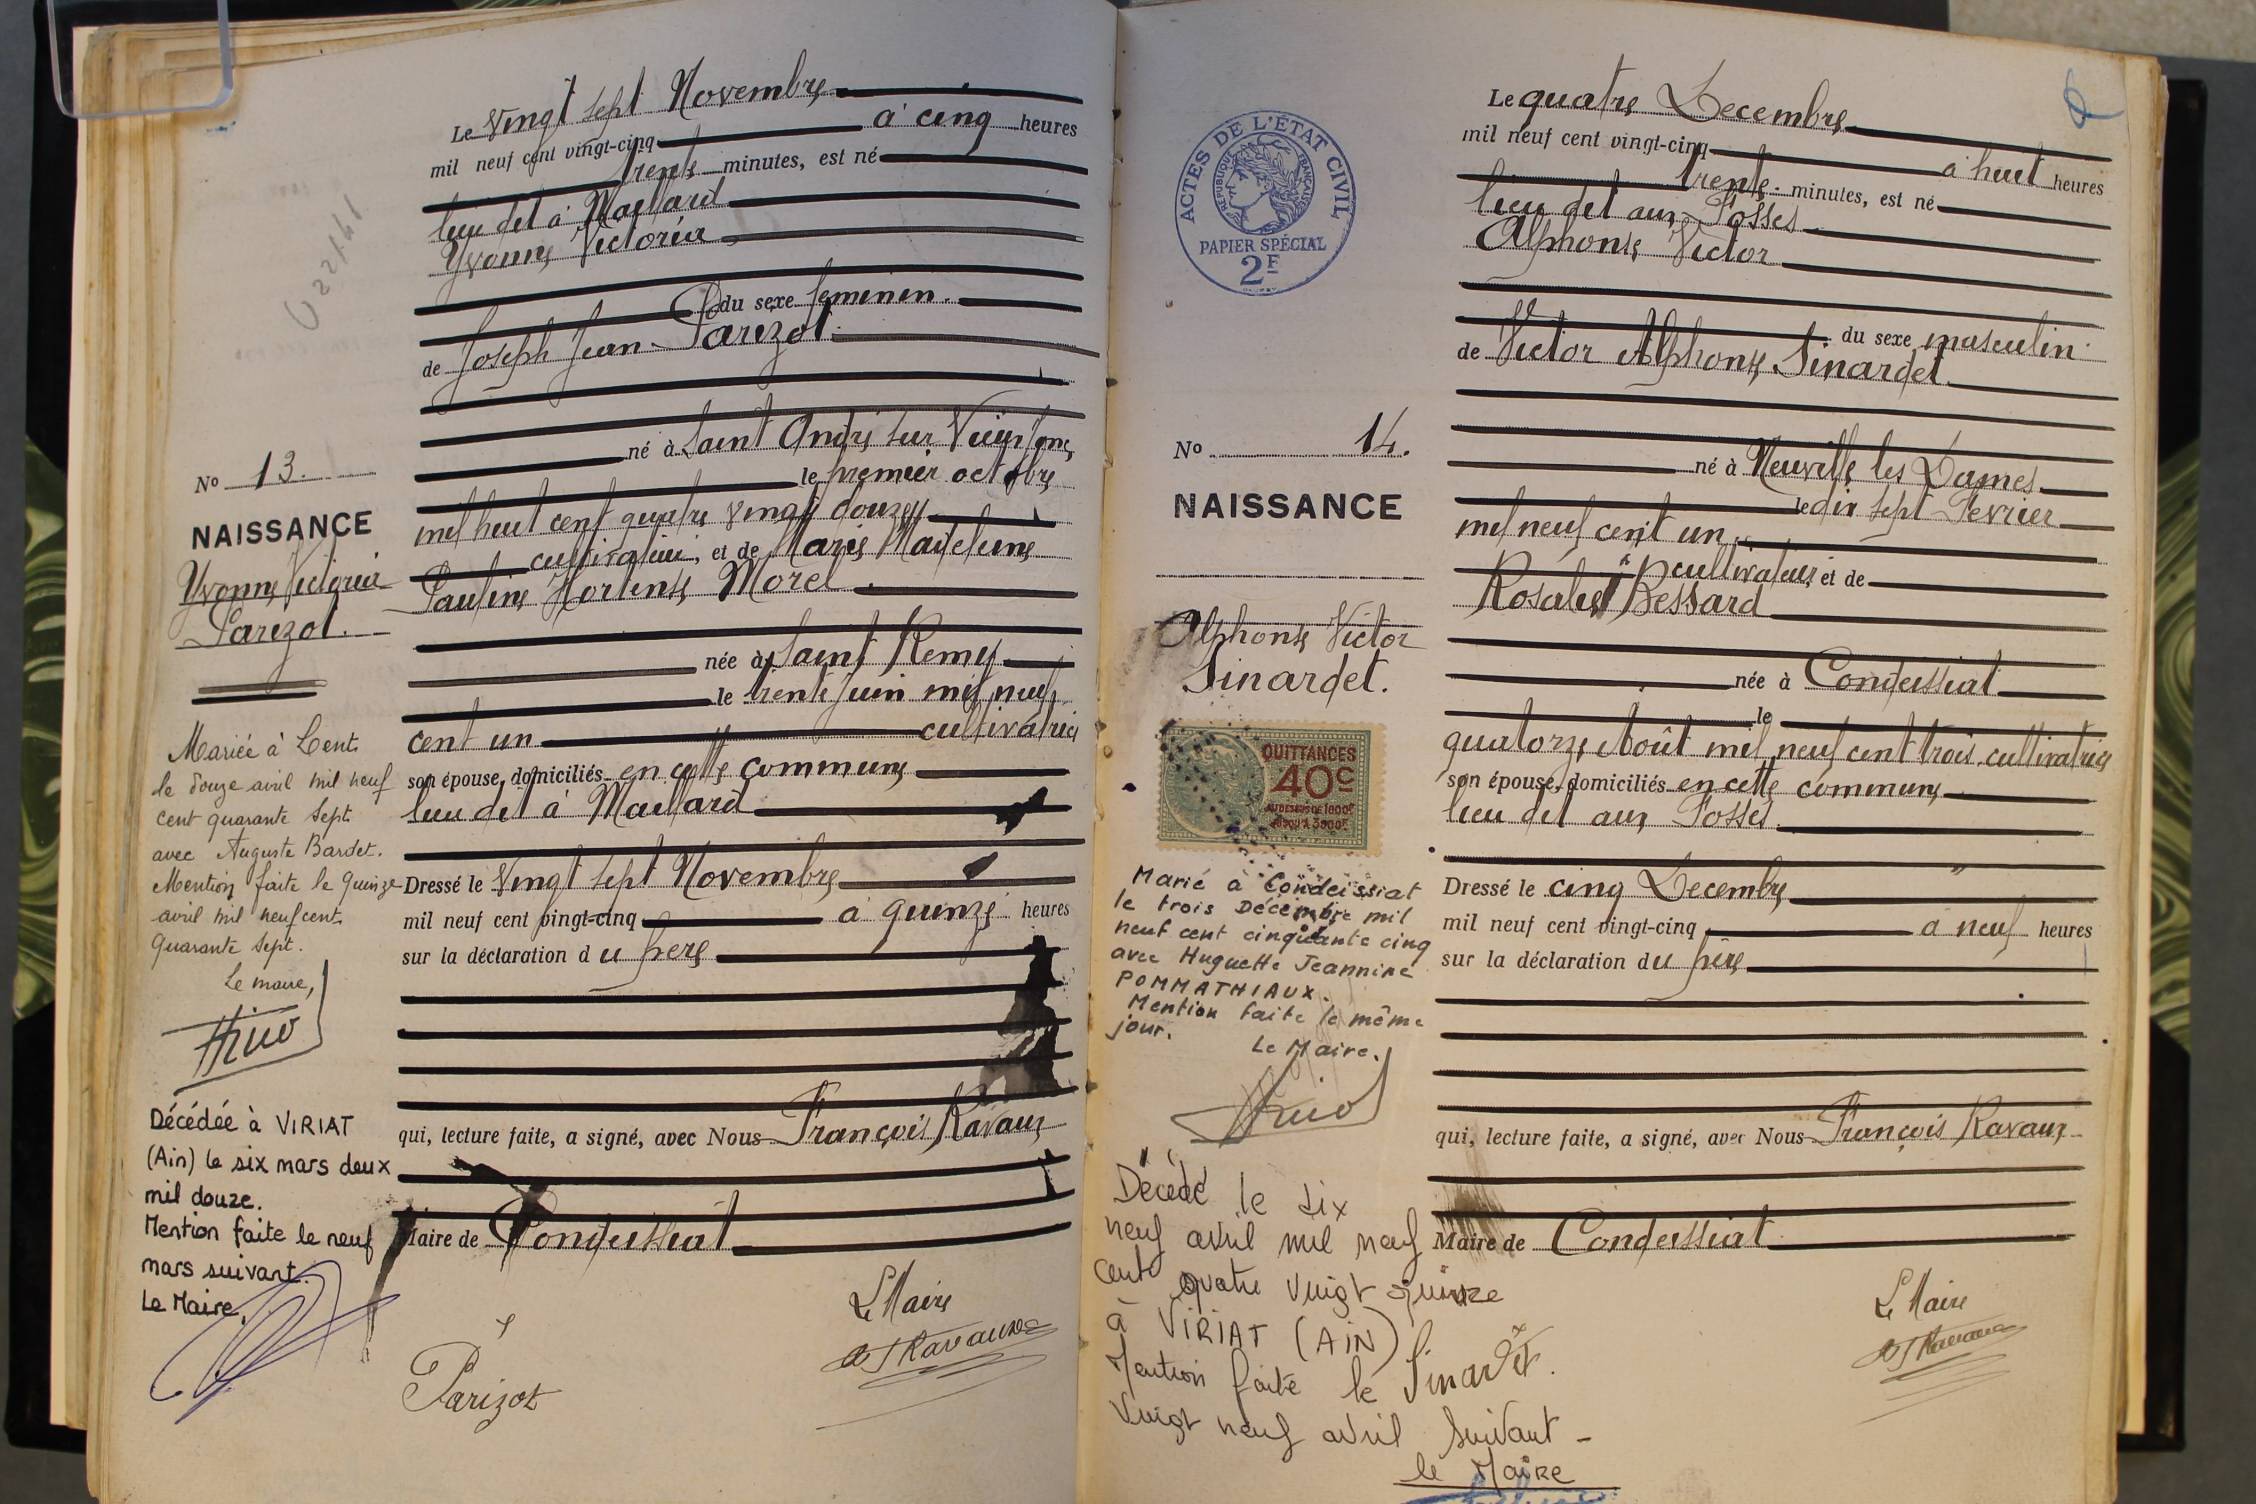 Le vingt sept Novembre
mil neuf cent vingt-cinq à cinq heures
trente minutes, est né
lieu dit à Maillard
Yvonne Victoria
du sexe feminin.
de Joseph Jean Parizot
né à Saint André sur Vieux Jonc
le premier octobre
mil huit cent quatre vingt douze
cultivateur, et de Marie Madeleine
Pauline Hortense Morel.
née à Saint Remy
le trente juin mil neuf
cent un cultivatrice
son épouse, domiciliés en cette commune
lieu dit à Maillard
Dressé le vingt sept Novembre
mil neuf cent vingt-cinq à quinze heures
sur la déclaration du père
qui, lecture faite, a signé, avec Nous François Ravaux
Maire de Condeissiat
Le Maire
Ravaux
Parizot
No 13.
NAISSANCE
Yvonne Victoria
Parizot.
Mariée à Lent
le douze avril mil neuf
cent quarante sept
avec Auguste Bardet.
Mention faite le quinze
avril mil neuf cent
quarante sept.
Le maire,
Décédée à VIRIAT
(Ain) le six mars deux
mil douze.
Mention faite le neuf
mars suivant.
Le Maire,
ACTES DE L'ÉTAT CIVIL
RÉPUBLIQUE FRANÇAISE
PAPIER SPÉCIAL
2F
No 14.
NAISSANCE
Alphonse Victor
Sinardet.
QUITTANCES
40c
AU DESSUS DE 1000F
JUSQU'À 3000F
Marié à Condeissiat
le trois Décembre mil
neuf cent cinquante cinq
avec Huguette Jeannine
POMMATHIAUX.
Mention faite le même
jour.
Le Maire.
Décédé le dix
neuf avril mil neuf
cent quatre vingt quinze
à VIRIAT (AIN)
Mention faite le
vingt neuf avril suivant -
le Maire
Le quatre Decembre
mil neuf cent vingt-cinq à huit heures
trente minutes, est né
lieu dit aux Fosses
Alphonse Victor
du sexe masculin
de Victor Alphonse Sinardet
né à Neuville les Dames
le dix sept Fevrier
mil neuf cent un
cultivateur et de
Rosalie Bessard
née à Condeissiat
le
quatorze Août mil neuf cent trois cultivatrice
son épouse, domiciliés en cette commune
lieu dit aux Fosses.
Dressé le cinq Decembre
mil neuf cent vingt-cinq à neuf heures
sur la déclaration du père
qui, lecture faite, a signé, avec Nous François Ravaux
Maire de Condeissiat
Le Maire
Ravaux
Sinardet.